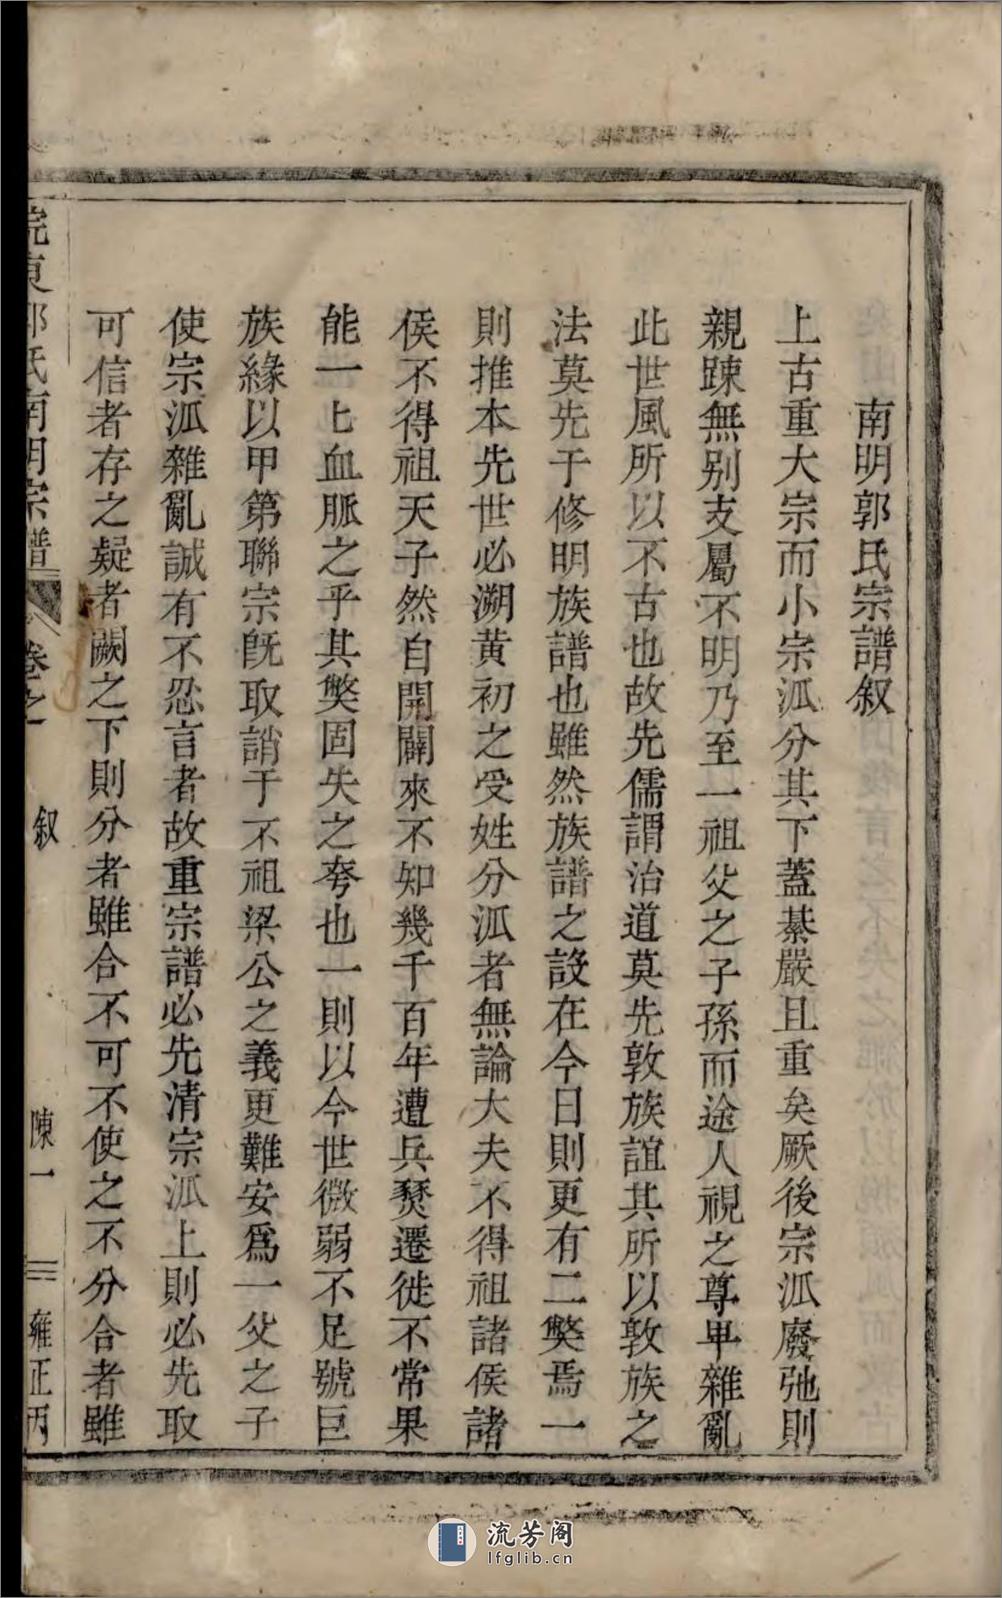 南明郭氏宗譜叙
上古重大宗而小宗泒分其下蓋綦嚴且重矣厥後宗泒廢弛則
親踈無别支屬不明乃至一祖父之子孫而途人視之尊卑雜亂
此世風所以不古也故先儒謂治道莫先敦族誼其所以敦族之
法莫先于修明族譜也雖然族譜之設在今日則更有二獘焉一
則推本先世必溯黄初之受姓分泒者無論大夫不得祖諸侯諸
侯不得祖天子然自開闢來不知幾千百年遭兵燹遷徙不常果
能一匕血脈之乎其獘固失之夸也一則以今世微弱不足號巨
族緣以甲第聯宗旣取誚于不祖梁公之義更難安爲一父之子
使宗泒雜亂誠有不忍言者故重宗譜必先清宗泒上則必先取
可信者存之疑者闕之下則分者雖合不可不使之不分合者雖
皖東郭氏南明宗譜 卷之一 叙 陳一 雍正丙
流芳阁
lfglib.cn